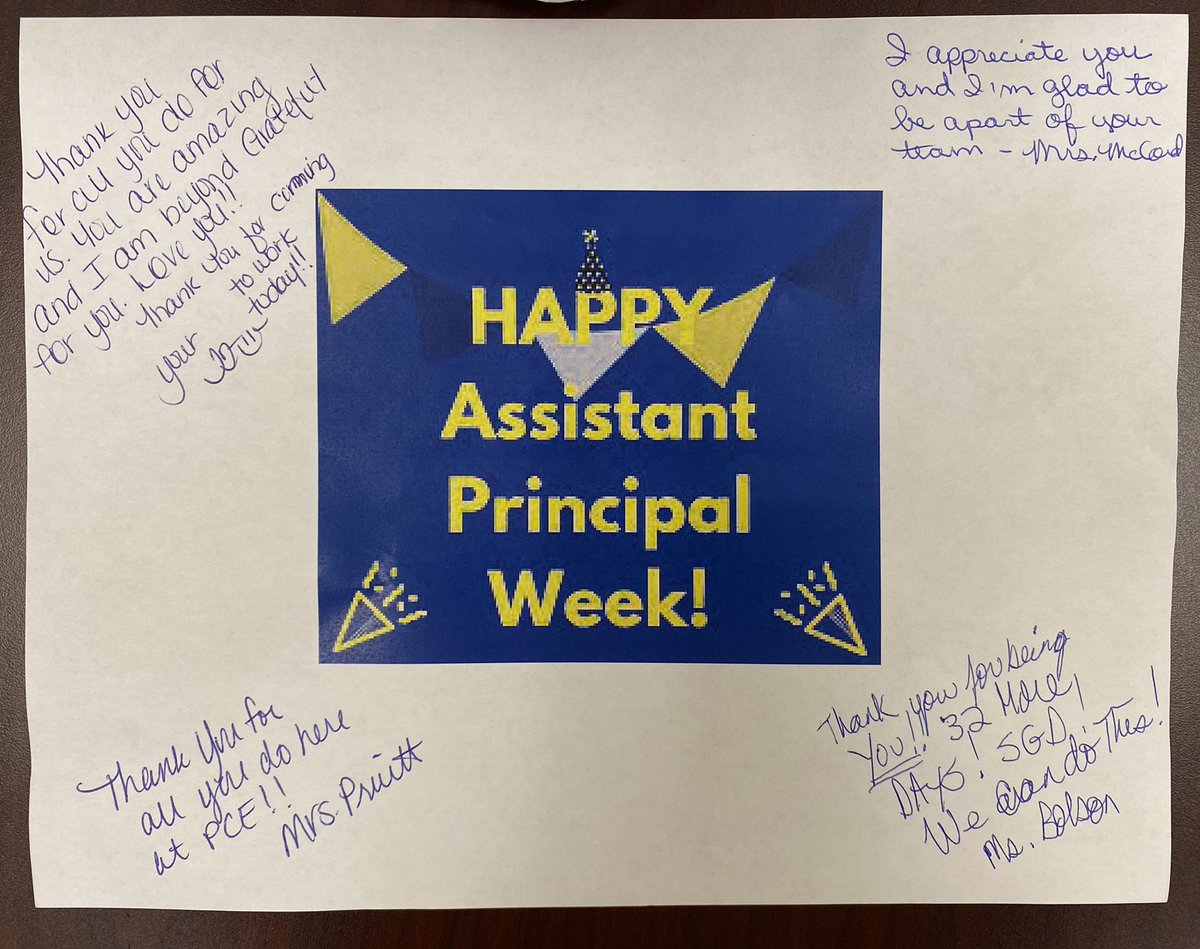 Thank you
for all you do for
us. You are amazing
and I am beyond Grateful
for you. Love you!!
Thank you for comming
to work
your today!!
I appreciate you
and I'm glad to
be apart of your
team - Mrs. McCord
HAPPY
Assistant
Principal
Week!
Thank You for
all you do here
at PCE!!
Mrs. Pruitt
Thank you for being
You!! 32 More
DAYS! SGD!
We can do This!
Ms. Bolson